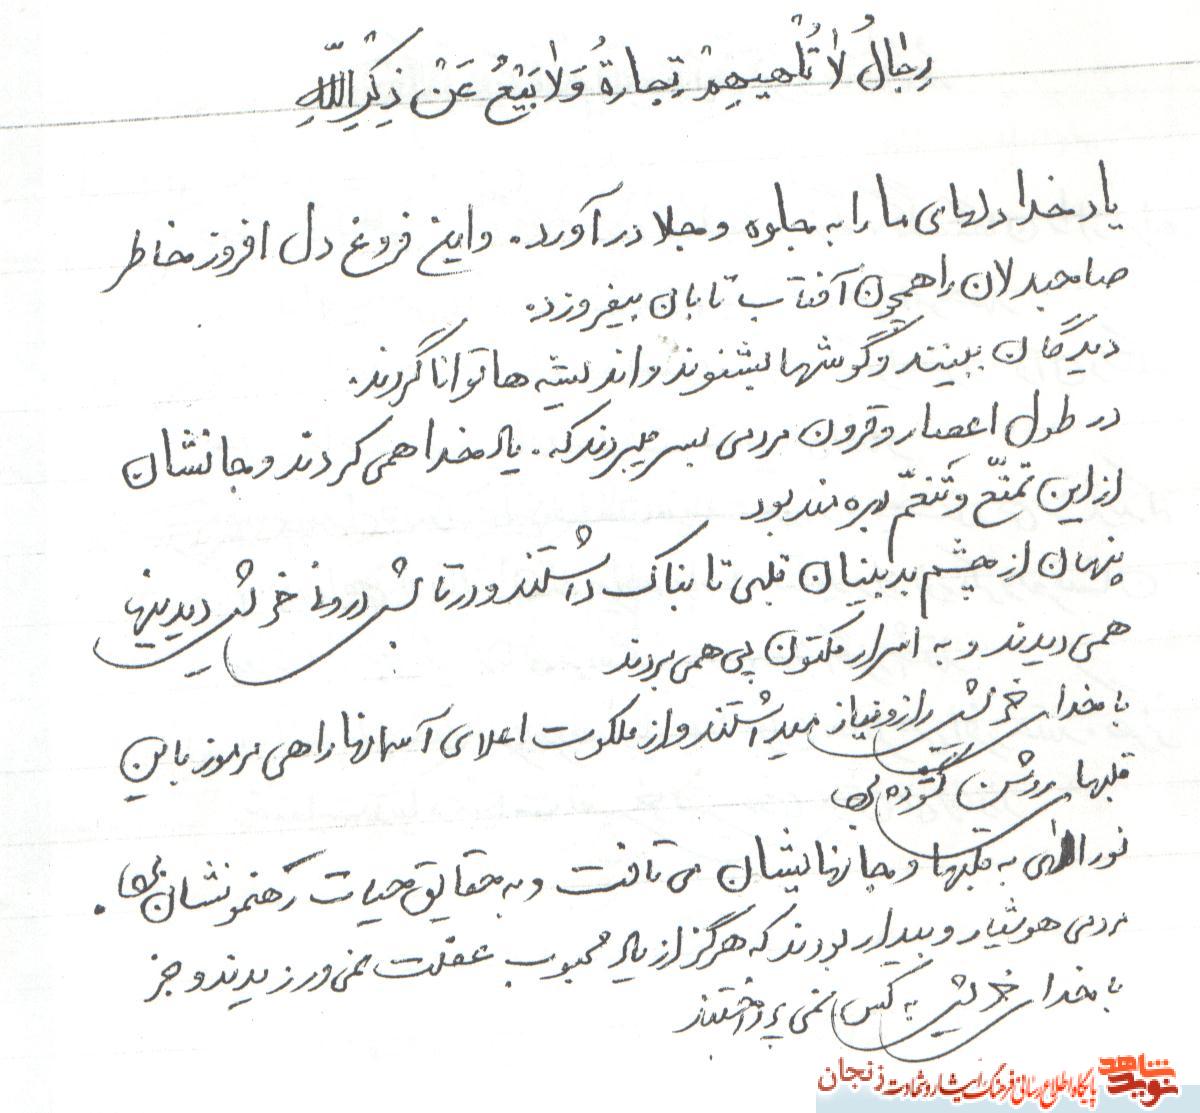 رِجٰالُ لٰا تُلْهیهِمْ تِجارةُ وَلاٰ بَیْعُ عَنْ ذِکْرِ اللّهِ
یاد خدا دلهای ما را به جلوه و جلا در آورد. و این فروغ دل افروز خاطر
صاحبدلان را همچون آفتاب تابان بیفروزد.
دیدگان ببینند و گوشها بشنوند و اندیشه ها توانا گردند.
در طول اعصار و قرون مردمی بسر میبردند که. یاد خدا همی کردند و جانشان
از این تمتّع و تَنَعّم بهره مند بود
پنهان از چشم بدبینان قلبی تابناک داشتند و در تابش درونی خویش دیدنیها
همی دیدند و به اسرار مکنون پی همی بردند
با خدای خویش راز و نیاز میداشتند و از ملکوت اعلای آسمانها راهی مرموز باین
قلبهای روشن گشوده بود
نور الهی به قلبها و جانهایشان می تافت و به حقایق حیات رهنمونشان بود.
مردمی هوشیار و بیدار بودند که هرگز از یاد محبوب غفلت نمی ورزیدند و جز
با خدای خویش به کس نمی پرداختند
نوید شاهد
پایگاه اطلاع رسانی فرهنگ ایثار و شهادت زنجان